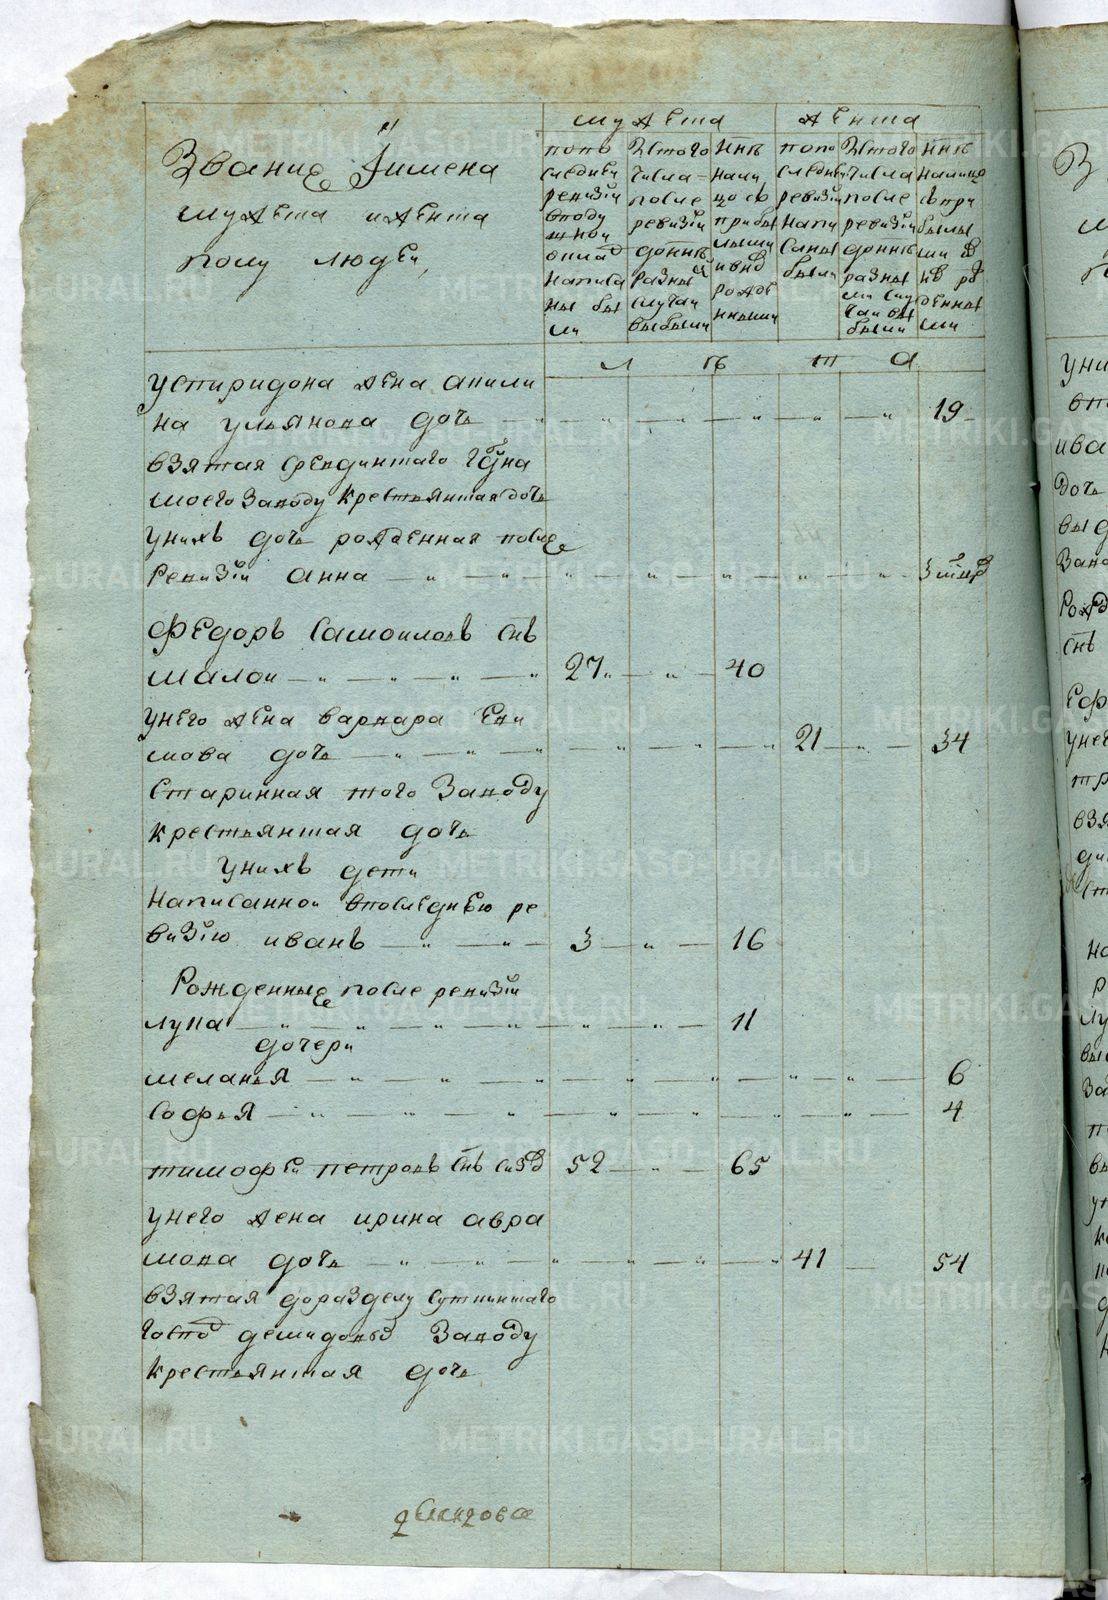 Звание Иимена
мужеска иженска
полу людей,
мужеска
женска
попо
следней
ревизии
вподу
шной
оклад
написа
ны бы
ли
Изтого
числа
после
ревизии
донне
разны
случаи
выбыли
нне
нали
цо со
прибы
лыми
ивнов
рожде
нными
попо
следней
ревизии
напи
саны
были
Изтого
числа
после
ревизии
донне
разны
ми слу
чаи вы
были
нне
налицо
сопри
былы
ми и
нов ро
жденны
ми
лета
успиридона жена акили
на ульянова дочь 19
взятая
моего заводу крестьянская дочь
унихъ дочь рожденная после
ревизии анна
Федоръ Самоиловъ снъ
малои 27 40
унего жена варвара Еки
мова дочь 21 34
старинная того заводу
крестьянская дочь
унихъ дети
написанной впоследнею ре
визию иванъ 3 16
Рожденные после ревизии
лупа 11
дочери
меланья 6
софья 4
тимофеи петровъ снъ 52 65
унего жена ирина авра
мова дочь 41 54
взятая доразделу суткинскаго
госпд демидовыхъ заводу
крестьянская дочь
METRIKI.GASO-URAL.RU